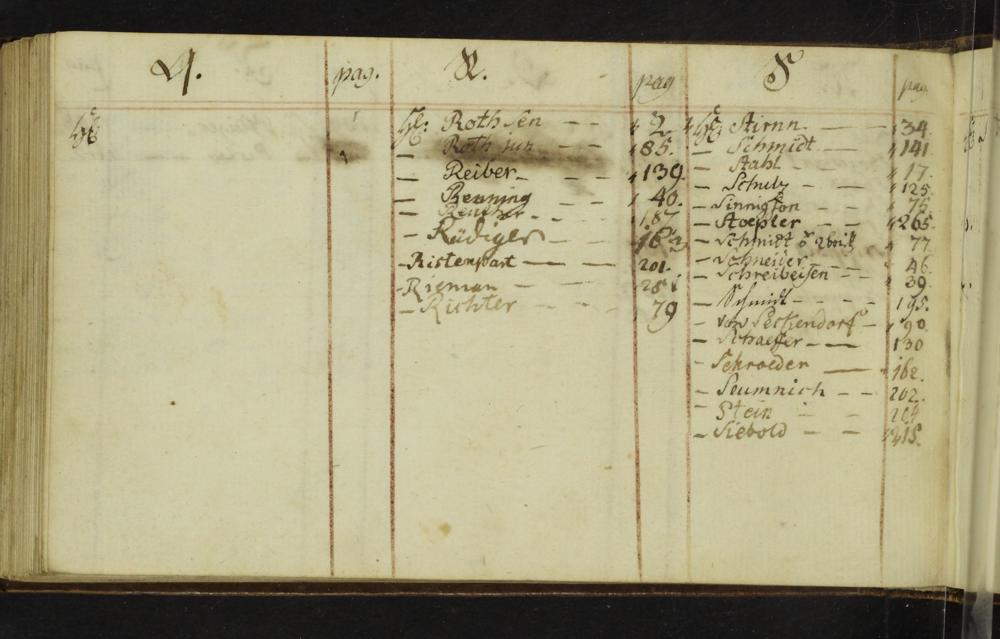 Q. pag. R. pag S pag
H:
H: Roth sen — — 2.
— Roth jun — — 85.
— Reiber — 139
— Renning — 40.
— — 187
— Rüdiger — 182
— Ristenpart — — — 201.
— Rieman — — — 281
— Richter — — — 79
H: Stirnn. — 134.
— Schmidt — 141
— Stahl — — 17.
— Schulz — — 125
— Sinnigson — — 75
— Stoepler — — 265
— Schmidt — 77
— Schneider — — 46.
— Schreibeisen — 39.
— Schmidt — — — 195.
— von Seckendorf — 90.
— Schaeffer — — 130
— Schroeder — 162.
— Seumnich — — 202.
— Stein — 204
— Siebold — — 215.